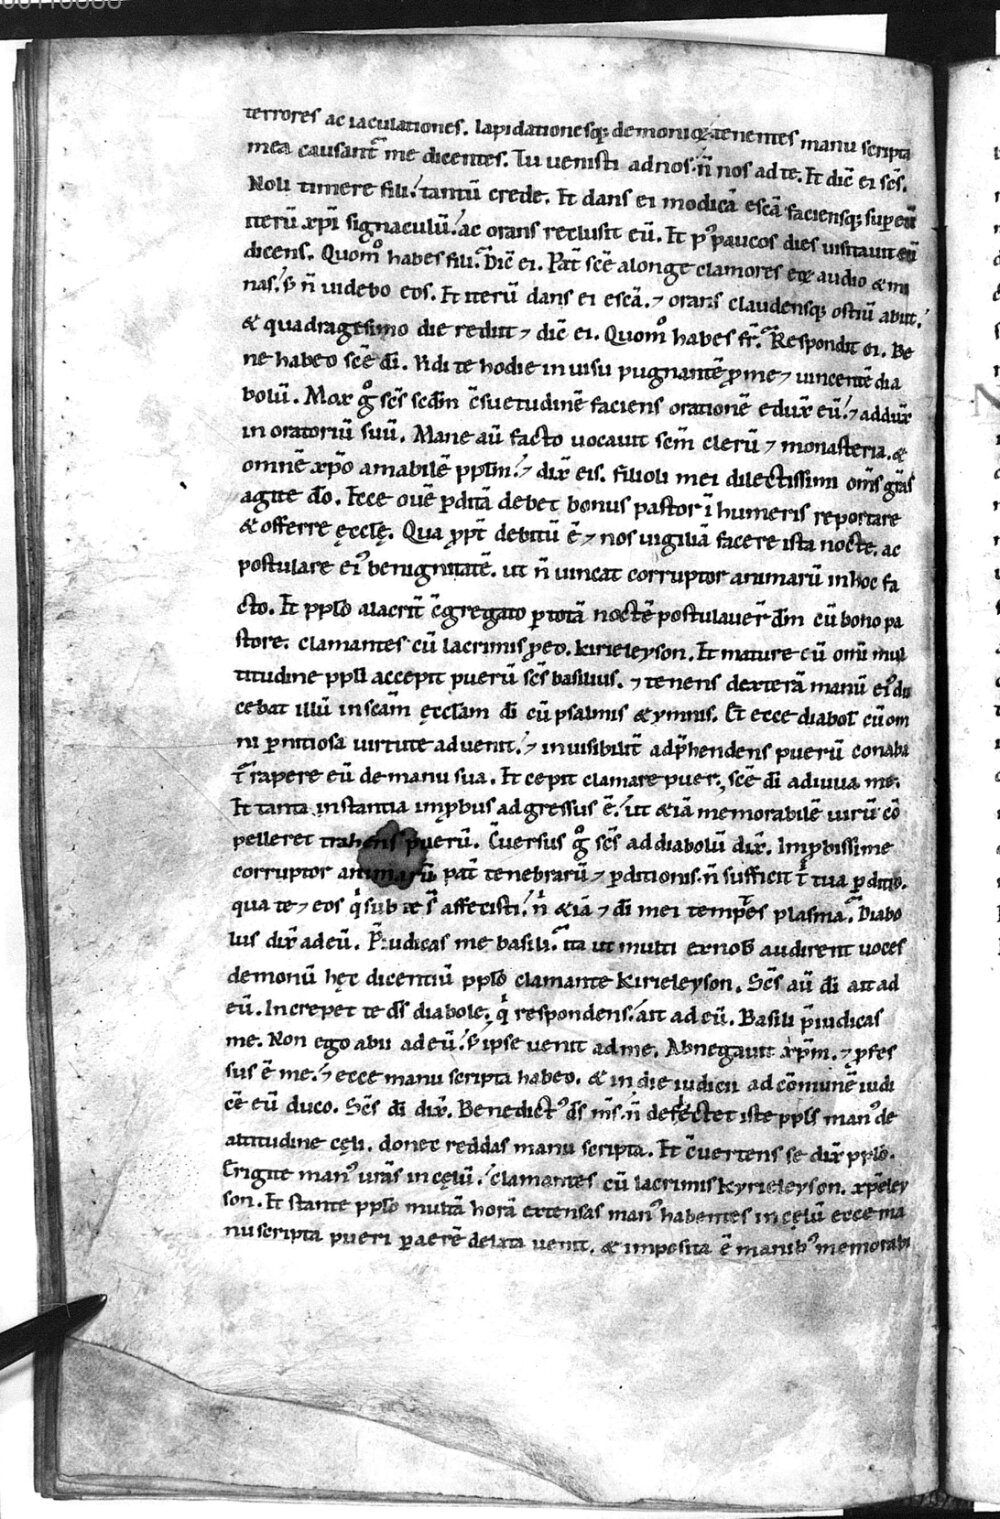 00110088
terrores ac iaculationes. lapidationesq; demoniace. tenentes manu scripta
mea causant᷑ me dicentes. Tu uenisti ad nos. n̄ nos ad te. Et dic̄ ei sc̄s.
Noli timere fili. tantū crede. Et dans ei modicā escā faciensq; super eū
iterū xp̄i signaculū. ac orans reclusit eū. Et pꝰ paucos dies uisitauit eū
dicens. Quom̊ habes fili. Dic̄ ei. Pat̄ sc̄e a longe clamores eoꝝ audio & mi
nas. ẜ n̄ uidebo eos. Et iterū dans ei escā. ⁊ orans claudensq; ostiū abiit.
& quadragesimo die rediit ⁊ dic̄ ei. Quom̊ habes fr̄. Respondit ei. Be
ne habeo sc̄e dī. Vidi te hodie in uisu pugnantē ꝓ me ⁊ uincentē dia
bolū. Mox g̊ sc̄s scd̄m c̄suetudinē faciens orationē eduxͭ eū. ⁊ adduxͭ
in oratoriū suū. Mane aū facto uocauit sc̄m clerū ⁊ monasteria. &
omnē xp̄o amabilē pplm̄. ⁊ dix̄ eis. filioli mei dilectissimi om̄s gr̄as
agite dō. Ecce ouē ꝑditā debet bonus pastor ī humeris reportare
& offerre ęccłę. Qua ꝓpt̄ debitū ē ⁊ nos uigiliā facere ista nocte. ac
postulare eiꝰ benignitatē. ut n̄ uincat corruptor animarū in hoc fa
cto. Et pplo alacrit̄ c̄gregato ꝑ totā noctē postulauer̄ dm̄ cū bono pa
store. clamantes cū lacrimis ꝓ eo. kirieleyson. Et mature cū om̄i mul
titudine ppli accepit puerū sc̄s basilius. ⁊ tenens dexterā manū eiꝰ du
cebat illū in sc̄am ęccłam dī cū psalmis & ymnis. Et ecce diabol̄ cū om
ni ꝑnitiosa uirtute aduenit. ⁊ inuisibilit̄ adp̄hendens puerū conaba
t᷑ rapere eū de manu sua. Et cepit clamare puer. sc̄e dī adiuua me.
Et tanta instantia imꝓbus adgressus ē. ut & iā memorabilē uirū cō
pelleret trahens puerū. C̄uersus g̊ sc̄s ad diabolū dix̄. Imꝓbissime
corruptor animarū pat̄ tenebrarū ⁊ ꝑditionis. n̄ sufficit t̄ tua ꝑditio.
qua te ⁊ eos qͥ sub te s̄t affecisti. n̄ & iā ⁊ dī mei temptes plasma. Diabo
lus dix̄ ad eū. P̄iudicas me basili. ita ut multi ex nob̄ audirent uoces
demonū hęc dicentiū pplo clamante kirieleyson. Sc̄s aū dī ait ad
eū. Increpet te ds̄ diabole. qͥ respondens. ait ad eū. Basili p̄iudicas
me. Non ego abii ad eū. ẜ ipse uenit ad me. Abnegauit xp̄m. ⁊ ꝓfes
sus ē me. ⁊ ecce manu scripta habeo. & in die iudicii ad cōmunē iudi
cē eū duco. Sc̄s dī dix̄. Benedictꝰ ds̄ ms̄. n̄ deflectet iste ppls manꝰ de
altitudine cęli. donec reddas manu scripta. Et c̄uertens se dix̄ pplo.
Erigite manꝰ ur̄as in cęlū. clamantes cū lacrimis kyrieleyson. xp̄eley
son. Et stante pplo multā horā extensas manꝰ habentes in cęlū ecce ma
nu scripta pueri ꝑ aerē delata uenit. & imposita ē manibꝰ memorabi